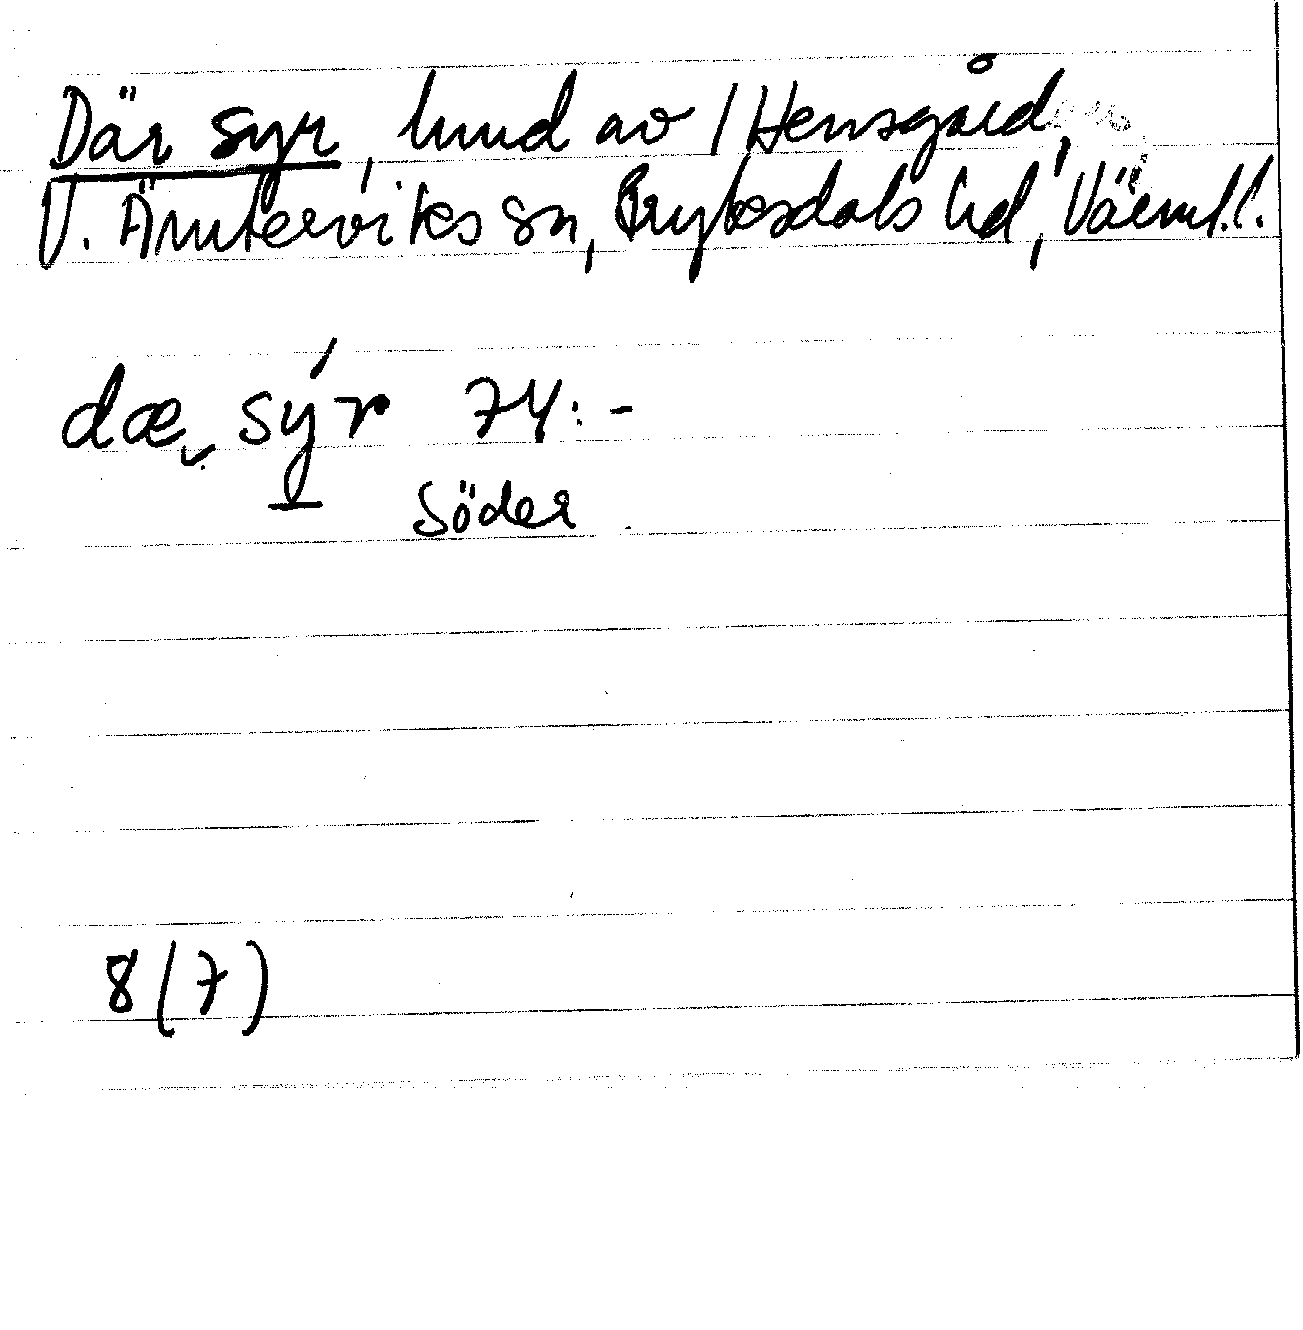 Där syr, hmd av 1 Hensgård,
V. Ämterviks sn, Fryksdals hd, Värml.l.
dæ sýr 74:-
Söder
8(7)